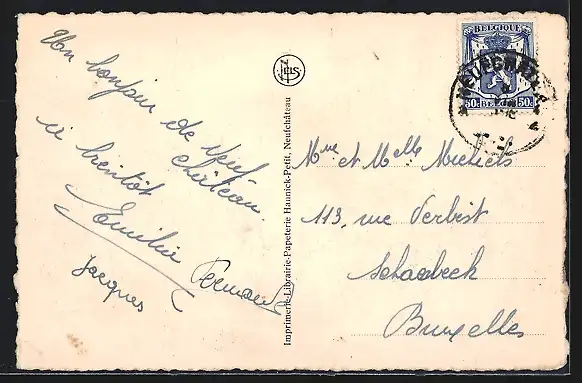 Un bonjour de Neuf-
château
à bientôt
Emilie
Fernand
Jacques
Imprimerie-Librairie-Papeterie Haunick-Petit, Neufchâteau
BELGIQUE
50c BELGIE 50c
Mme et Melle Michiels
113, rue Verbist
Schaerbeek
Bruxelles